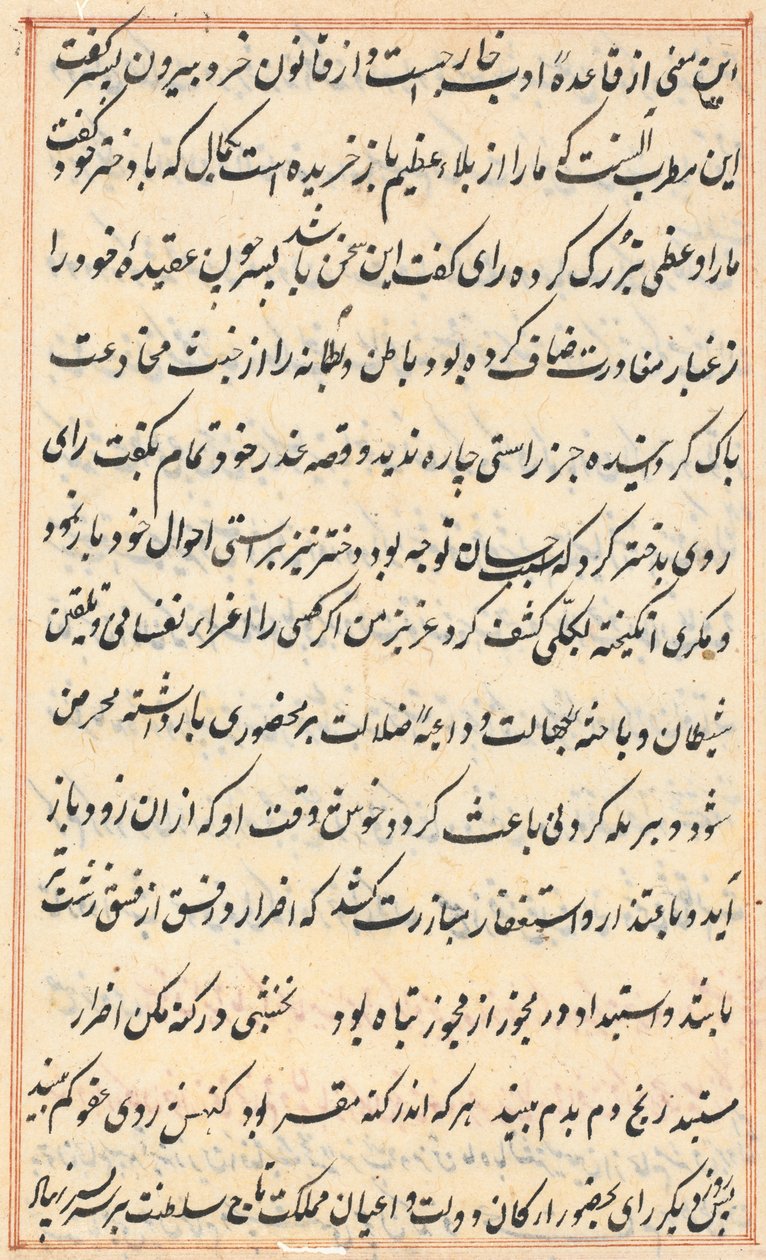 این معنی از قاعدهٔ ادب خارجست و از قانون خرد بیرون پسر گفت
این مطرب آنست که ما را از بلاء عظیم باز خریده است بکمال که با دختر خود گفت
ما را وعظی بزرک کرده رای کفت این سخن باشد پسر چون عقیدهٔ خود را
ز غبار مغادرت صاف کرده بود باطن و بطانه را از خبث مخادعت
پاک کردانیده جز راستی چاره ندید و قصه غدر خود تمام بکفت رای
روی بدختر کرد که سبب احسان توجه بود دختر نیز براستی احوال خود باز نمود
و مکری انکیخته بکلّی کشف کرد عزیز من اکر کسی را اغراء نفسانی و تلقین
شیطان و باعثهٔ جهالت و داعیهٔ ضلالت بر محضوری بار داشته محرمن
شود و بر بله کردنی باعث کردد خوش وقت او که از ان زود باز
آید و باعتذار و استغفار مبادرت کند که اصرار در فسق از فسق زشت تر
باشد و استبداد در مجوز از مجوز تباه بود نخشبی در کنه مکن اصرار
مستبد رنج دم بدم بیند هر که اندر کنه مقر بود کنهش روی عفو کم بیند
پس روز دیکر رای بحضور ارکان دولت و اعیان مملکت تاج سلطنت بر سر پسر نهاد